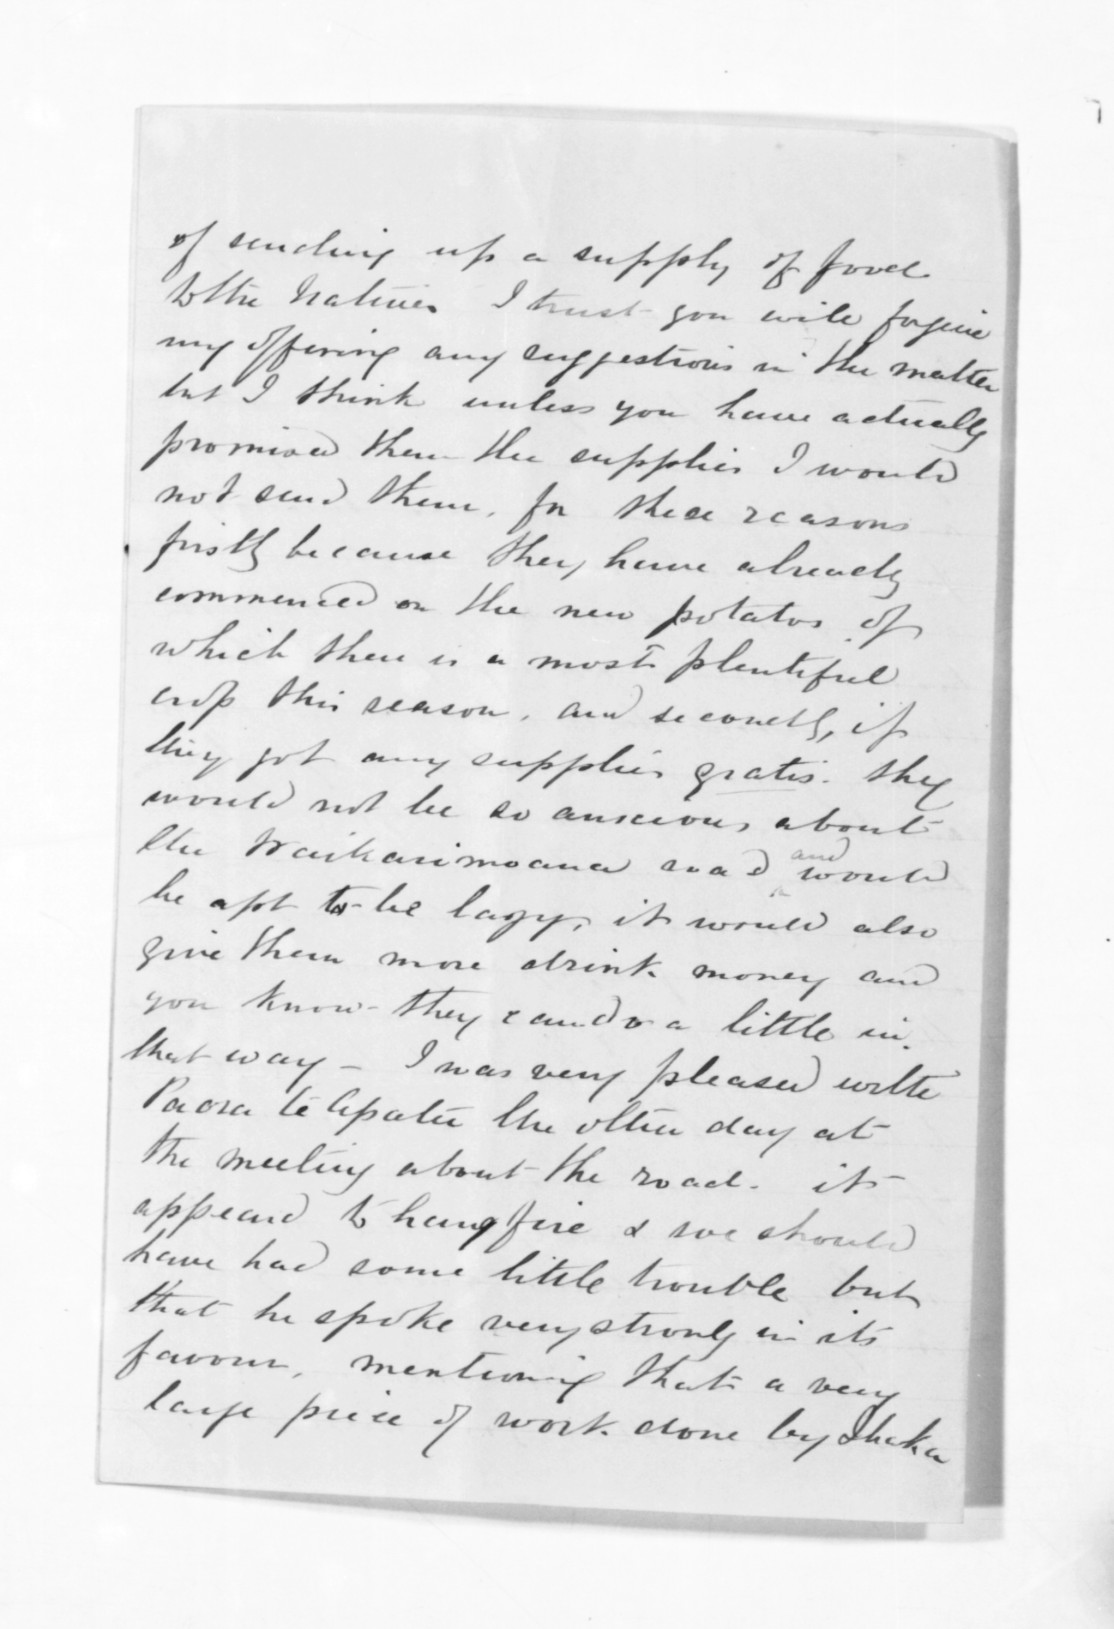 of sending up a supply of food
to the Natives I trust you will forgive
my offering any suggestions in the matter
but I think unless you have actually
promised them the supplies I would
not send them, for these reasons
firstly because they have already
commenced on the new potatos of
which there is a most plentiful
crop this season, and secondly, if
they got any supplies gratis. they
would not be so anxious about
the Waikarimoana road and would
be apt to be lazy, it would also
give them more drink money and
you know they can do a little in
that way - I was very pleased with
Paora te Apatu the other day at
the meeting about the road. it
appeared to hang fire & we should
have had some little trouble but
that he spoke very strongly in its
favour, mentioning that a very
large piece of work done by Ihaka